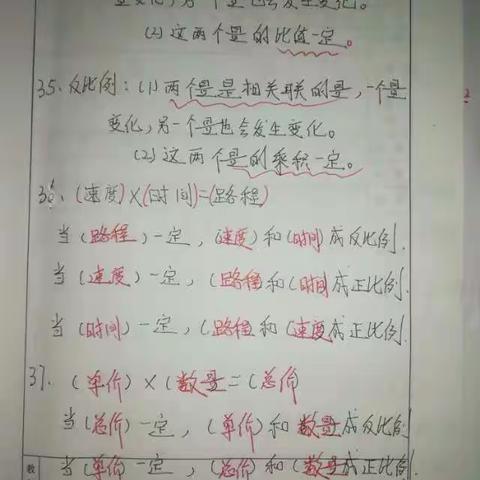 量变化,另一个量也会发生变化。
(2)这两个量的比值一定。
35、反比例:(1)两个量是相关联的量,一个量
变化,另一个量也会发生变化。
(2)这两个量的乘积一定。
36、(速度)×(时间)=(路程)
当(路程)一定,(速度)和(时间)成反比例.
当(速度)一定,(路程和(时间成正比例.
当(时间)一定,(路程和(速度成正比例.
37.(单价)×(数量=(总价
当(总价)一定,(单价)和数量成反比例
当(单价一定,(总价)和(数量成正比例.
教